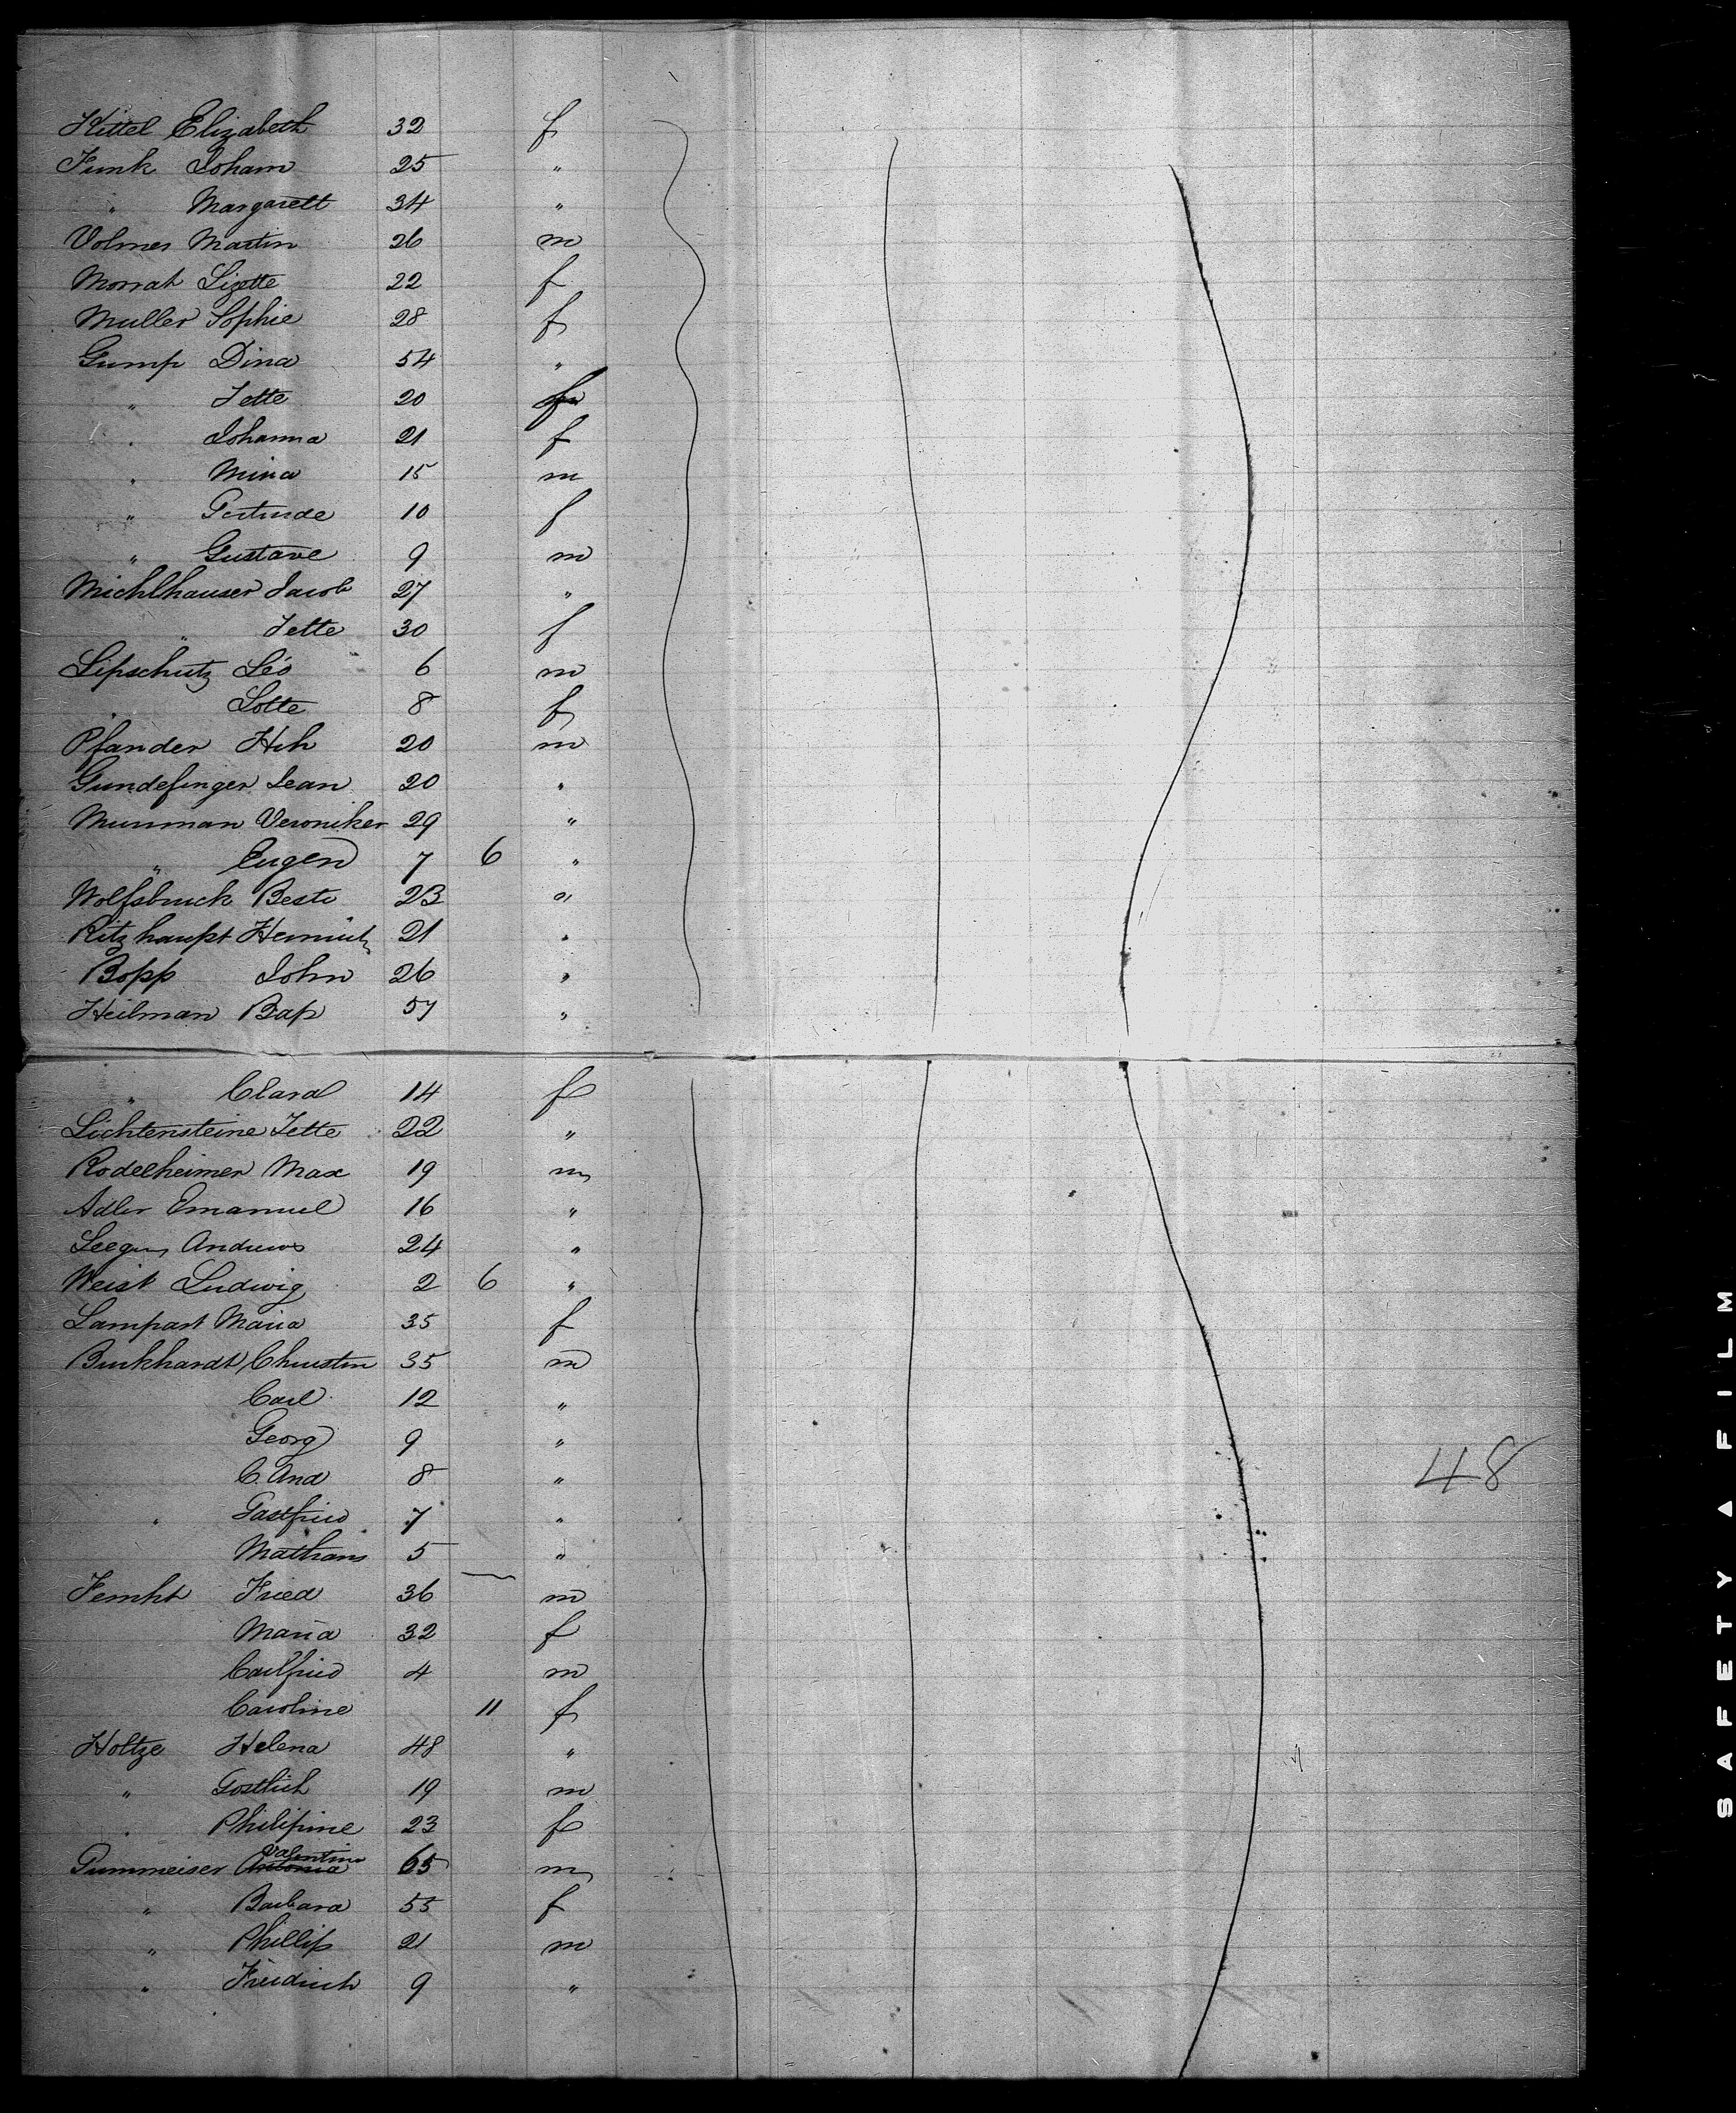 Kittel Elizabeth 32 f
Funk Johann 25 "
" Margarett 34 "
Volmer Martin 26 m
Morrat Lizette 22 f
Muller Sophie 28 f
Gump Dina 54 "
" Jette 20 f
" Johanna 21 f
" Mina 15 m
" Gertrude 10 f
" Gustave 9 m
Michlhauser Jacob 27 "
" Jette 30 f
Lipschutz Léo 6 m
" Lotte 8 f
Pfander Hch 20 m
Gundefinger Jean 20 "
Munman Veroniker 29 "
" Eugen 7 6 "
Wolfsbruch Beste 23 "
Ritzhaupt Heinrich 21 "
Bopp John 26 "
Heilman Bap 57 "
" Clara 14 f
Lichtensteine Jette 22 "
Rodelheimer Max 19 m
Adler Emanuel 16 "
Andrews 24 "
Weist Ludwig 2 6 "
Lampart Maria 35 f
Burkhardt Christin 35 m
Carl 12 "
Georg 9 "
C. And 8 "
" Gastfried 7 "
Mathans 5 "
Fried 36 m
Maria 32 f
Carlfried 4 m
Caroline 11 f
Holtze Helena 48 "
" Gottlieb 19 m
" Philipine 23 f
Valentine
Pummeiser Antonia 65 m
" Barbara 55 f
" Phillip 21 m
" Friedrich 9 "
48
SAFETY ▲ FILM